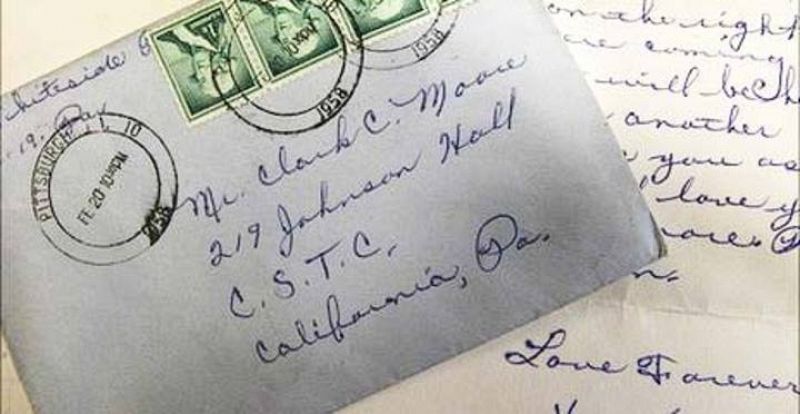 Whiteside
19. Pa
PITTSBURGH
10
FE 20 10 PM
1958
1958
1958
Mr. Clark C. Moore
219 Johnson Hall
C. S. T. C.
California, Pa.
on the right
are coming
will be
another
you as
love
more.
Love Forever